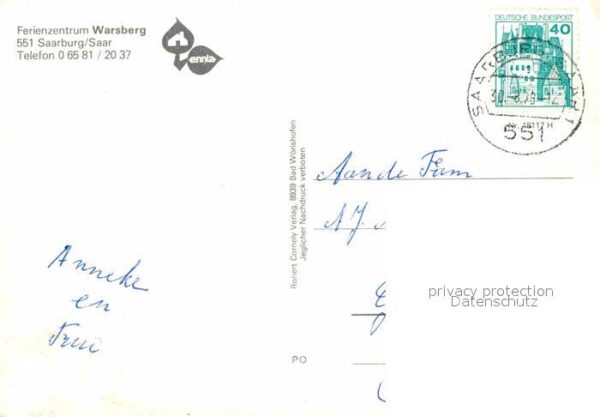 Ferienzentrum Warsberg
551 Saarburg/Saar
Telefon 0 65 81 / 20 37
ennia
DEUTSCHE BUNDESPOST
40
SAARBURG
551
Robert Cornely Verlag, 8939 Bad Wörishofen
Jeglicher Nachdruck verboten
Aan de Fam
Anneke
en
privacy protection
Datenschutz
PO